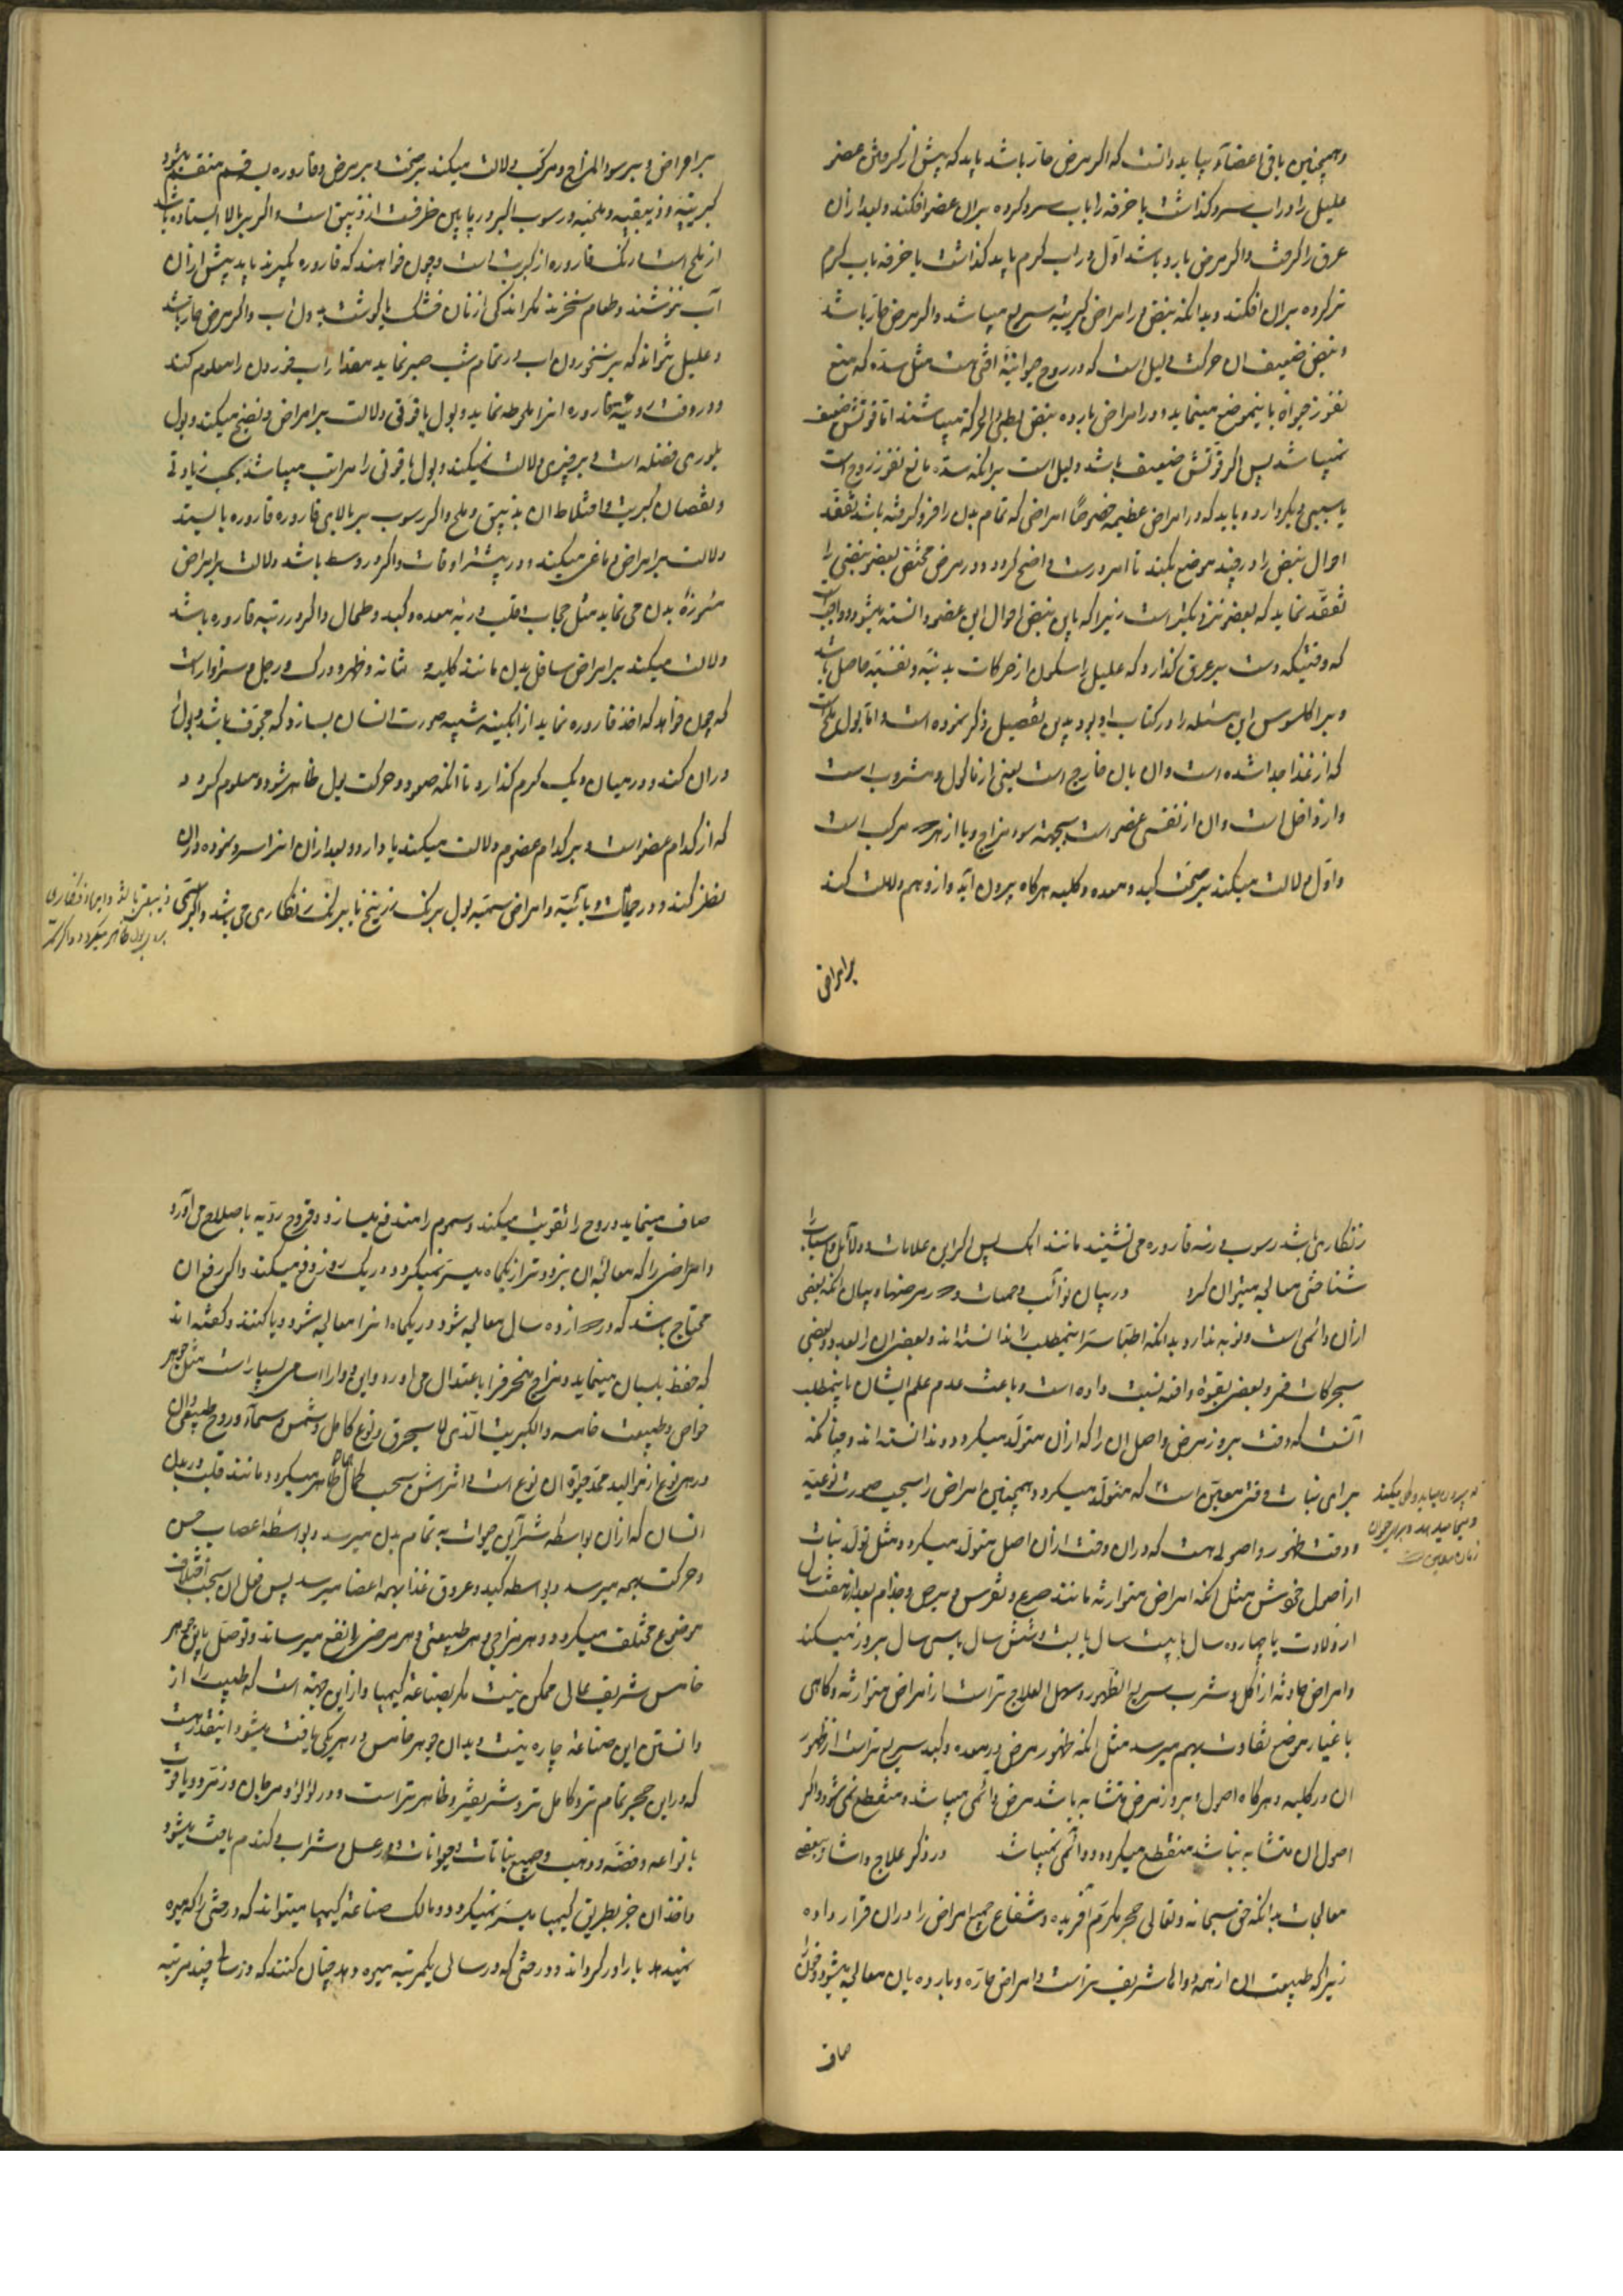 وهمچنین باقی اعضاء و بباید دانست که اکر مرض حار باشد باید که پیش از کرفتن عضو
علیل را در اب سرد کذاشت یا خرقه را باب سرد کرده بران عضو افکند و بعد از ان
عرق را کرفت و اکر مرض بارد باشد اول در اب کرم باید کذاشت یا خرقه باب کرم
تر کرده بران افکند و بدانکه نبض در امراض کبریتیه سریع میباشد و اکر مرض حار باشد
و نبض ضعیف ان حرکت دلیل است که در روح حیوانیه افتی هست مثل سده که منع
نفوذ حیوة باینموضع مینماید و در امراض بارده نبض بطیء الحرکه میباشند اما قوتش ضعیف
نمیباشد پس اکر قوتش ضعیف باشد دلیل است برانکه سده مانع نفوذ روح است
یا سببی دیکر دارد و باید که در امراض عظیمه خصوصا امراضی که تمام بدن را فرو کرفته باشد تفقد
احوال نبض را در چند موضع بکنند تا امر درست واضح کردد و در مرض مختص بعضو نبضی را
تفقد نماید که بعضو نزدیکتر است زیرا که باین نبض احوال این عضو دانسته میشود و واجب است
که وقتیکه دست بر عرق کذارد که علیل را سکون از حرکات بدنیه و نفسیه حاصل باشد
و براکلسوس این مسئله را در کتاب بدین تفصیل ذکر نموده است و اما بول ملح است
که از غذا جدا شده است و ان یا خارج است یعنی از ماکول و مشروب است
و از داخل است و ان از نفس عضو است بجهة سوء مزاج و یا از هر دو مرکب است
و اول دلالت میکند بر صحت کبد و معده و کلیه هرکاه بیرون آید و از دوم دلالت کند
بر امراض
بر امراض و بر سوء المزاج و مرکب دلالت میکند بر صحت و بر مرض و قاروره بسه قسم منقسم میشود
کبریتیه و زیبقیه و ملحیه و رسوب اکر در پایین ظرفست از زیبق است و اکر بر بالا ایستاده باشد
از ملح است و رنک قاروره از کبریت است و چون خواهند که قاروره بکیرند باید پیش از ان
آب ننوشند و طعام نخورند مکر اندکی از نان خشک یا کوشت بدون اب و اکر مرض حار باشد
و علیل نتواند که بر نخوردن اب در تمام شب صبر نماید مقدار اب خوردن را معلوم کند
و در وقت رویت قاروره انرا ملحوظ نماید و بول یاقوتی دلالت بر امراض و نضج میکند و بول
بلوری فضله است و بر چیزی دلالت نمیکند و بول یاقوتی را مراتب میباشد بحسب زیادتی
و نقصان کبریت و اختلاط ان بزیبق و ملح و اکر رسوب بر بالای قاروره بایستد
دلالت بر امراض دماغی میکند در بیشتر اوقات و اکر در وسط باشد دلالت بر امراض
بدن می نماید مثل حجاب قلب و ریه معده و کبد و طحال و اکر در ته قاروره باشد
دلالت میکند بر امراض سافل بدن مانند کلیه و مثانه و ظهر و ورک و رجل و سزاوار است
که چون خواهد که اخذ قاروره نماید از ابکینه شبیه صورت انسان بسازد که مجوف باشد و بول را
دران کند و در میان دیک کرم کذارد تا انکه صعود و حرکت بول ظاهر شود و معلوم کردد
که از کدام عضو است و بر کدام عضو دلالت میکند یا دارد و بعد از ان انرا سرد نموده دران
نظر کند و در حمیات وبائیه و امراض سمیه بول برنک زرنیخ یا برنک زنکاری می باشد و اکر سمی
زنکاری باشد رسوب در ته قاروره می نشیند مانند اهک پس اکر این علامات و دلائل و اسباب را
شناختی معالجه میتوان کرد در بیان نوائب و حمیات و در مرضها و بیان انکه بعضی
از ان دائمی است و نوبه ندارد بدانکه اطبا سر اینمطلب را ندانسته اند و بعضی ان را بعدد و بعضی
بحرکات قمر و بعضی بقوة وافعه نسبت داده است و باعث عدم علم ایشان باینمطلب
آنست که وقت بروز مرض و اصل ان را که از ان متولد میکردد ندانسته اند و چنانکه
برای نباتات وقتی معین است که متولد میکردد و همچنین امراض را بحسب صورت نوعیه
که بیرون میاید و کل میکند
و وقت ظهور و اصولی هست که دران وقت از ان اصل متولد میکردد مثل تولد نبات
از اصول خویش مثل انکه امراض متوارثه مانند صرع و نقرس و برص و جذام بعد از هفت سال
از ولادت یا چهارده سال یا بیست سال یا بیست و شش سال یا سی سال بروز میکند
و امراض حادثه از اکل و شرب سریع الظهور و سهل العلاج تر است از امراض متوارثه و کاهی
باعتبار موضع تفاوت بهم میرسد مثل انکه ظهور مرض در معده و کبد سریع تر است از ظهور
ان در کلیه و هرکاه اصول و بروز مرض متشابه باشد مرض دائمی میباشد و منقطع نمی شود و اکر
اصول ان متشابه نباشد منقطع میکردد و دائمی نمیباشد در ذکر علاج و اشاره ببعضی
معالجات بدانکه حق سبحانه و تعالی حجر مکرم آفریده و شفاء جمیع امراض را دران قرار داده
زیرا که طبیعت ان از همه دواها شریف تر است و امراض حاره و بارده بان معالجه میشود و خون را
صاف
صاف مینماید و روح را تقویت میکند و سموم را مندفع میسازد و قروح ردیه باصلاح می آورد
و امراضی را که معالجه ان بزودتر از یکماه میسر نمیکردد در یک روز دفع میکند و اکر رفع ان
محتاج باشد که در دوازده سال معالجه شود در یکماه انرا معالجه شود و یا کنند و کفته اند
که حفظ بلسان مینماید و مزاج منحرف را باعتدال می اورد و این دوا را اسامی بسیار است مثل جوهر
خواص و طبیعت خامسه و الکبریت الذی لا یحرق و نوع کامل و شمس و سماء و روح طبیعی و ان
در هر نوع از موالید ممد حیوة ان نوع است و اثرش بحسب کمال ظاهر میکردد مانند قلب در بدن
انسان که از ان بواسطه شرائین حیوة به تمام بدن میرسد و بواسطه اعصاب حس
و حرکت بهمه میرسد و بواسطه کبد و عروق غذا بهمه اعضا میرسد پس فعل ان بحسب اختلاف
موضوع مختلف میکردد و هر مزاجی و هر طبیعتی و هر مرضی را نفع میرساند و توصل باین جوهر
خامس شریف عالی ممکن نیست مکر بصناعة کیمیا و از این جهة است که طبیب را از
دانستن این صناعة چاره نیست و بدان جوهر خامس در هر یکی یافت میشود اینقدر هست
که در این حجر تمام تر و کامل تر و شریفتر و ظاهر تر است و در لؤلؤ و مرجان و زمرد و یاقوت
بانواعه و فضه و ذهب و جمیع نباتات و حیوانات و در عسل و شراب و کندم یافت میشود
و اخذ ان جز بطریق کیمیا میسر نمیکردد و مالک صناعة کیمیا میتواند که درختی را که میوه
نمیدهد باراور کرداند و درختی که در سالی یکمرتبه میوه دهد چنان کنند که در سال چند مرتبه